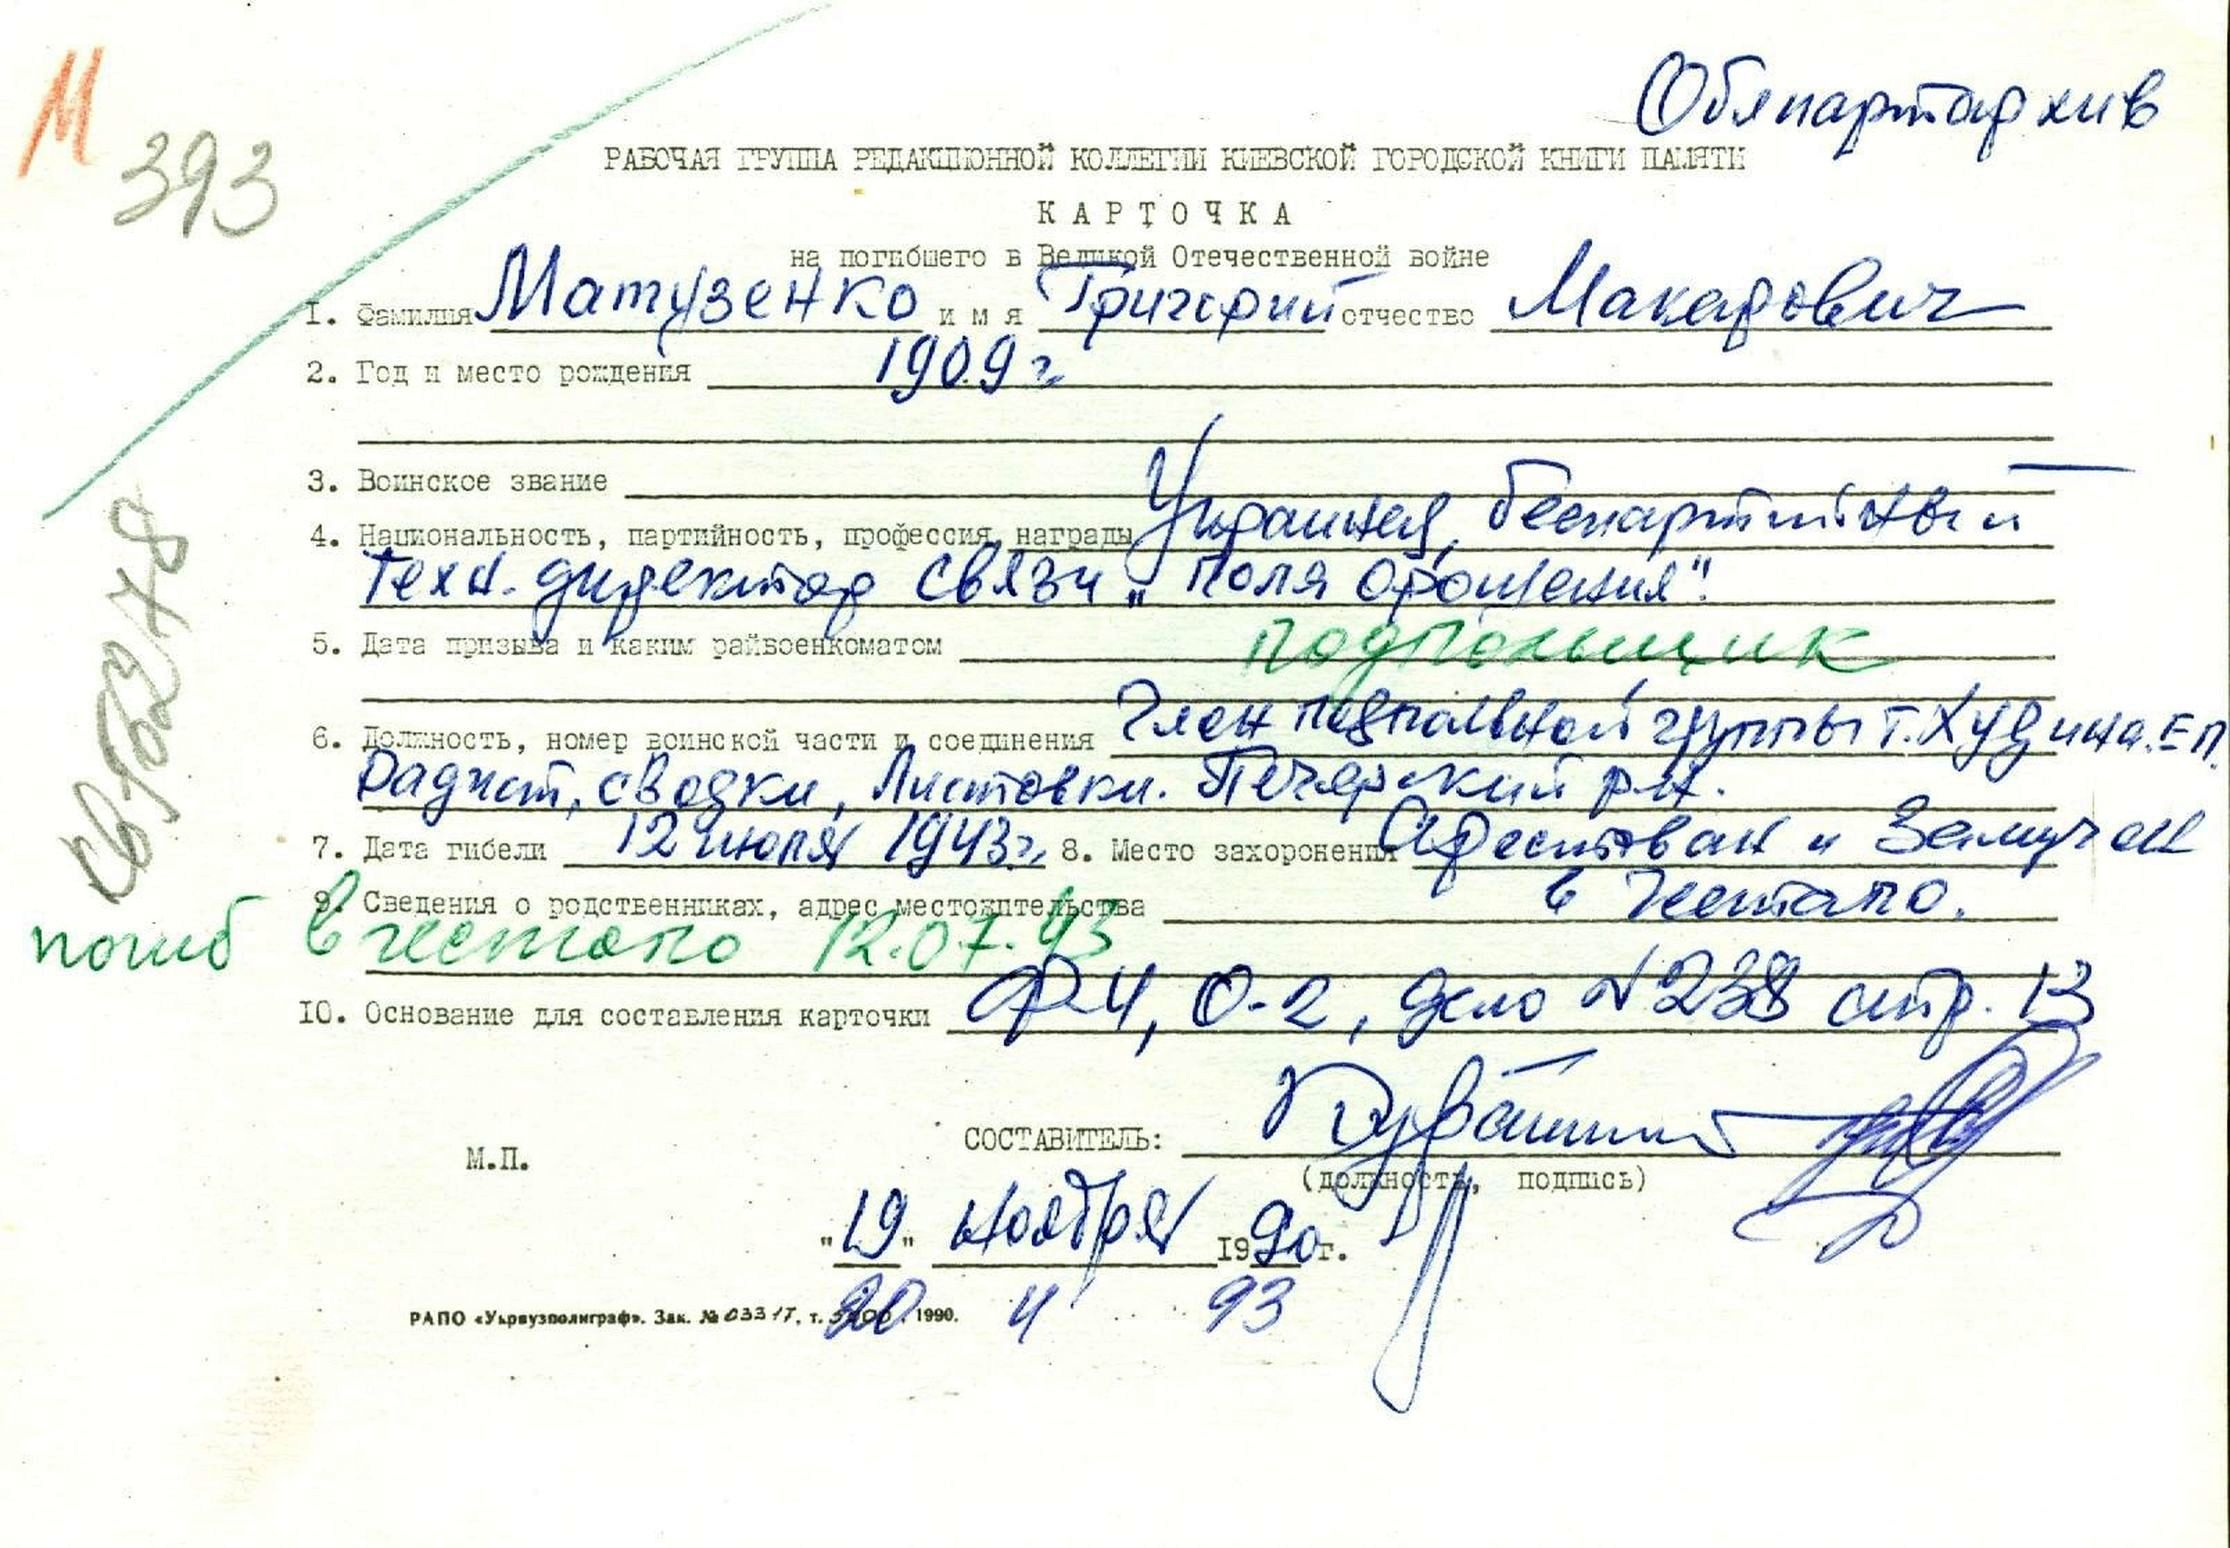 М
393
Облпартархив
РАБОЧАЯ ГРУППА РЕДАКЦИОННОЙ КОЛЛЕГИИ КИЕВСКОЙ ГОРОДСКОЙ КНИГИ ПАМЯТИ
КАРТОЧКА
на погибшего в Великой Отечественной войне
1. Фамилия Матузенко имя Григорий отчество Макарович
2. Год и место рождения 1909 г.
3. Воинское звание
4. Национальность, партийность, профессия, награды Украинец, беспартийный
техн. директор связи „Поля орошения".
5. Дата призыва и каким райвоенкоматом подпольщик
6. Должность, номер воинской части и соединения Член подпольной группы т. Худина Е П.
Радист, сводки, Листовки. Печерский р-н.
7. Дата гибели 12 июля 1943 г. 8. Место захоронения Арестован и Замучен
в гестапо.
9. Сведения о родственниках, адрес местожительства
погиб в гестапо 12.07.43
10. Основание для составления карточки Ф-4, О-2, дело №238 стр. 13
СОСТАВИТЕЛЬ:
М.П.
(должность, подпись)
"19" ноября 1990 г.
20 4 93
РАПО «Укрвузполиграф». Зак. № 0331т, т. 1990.